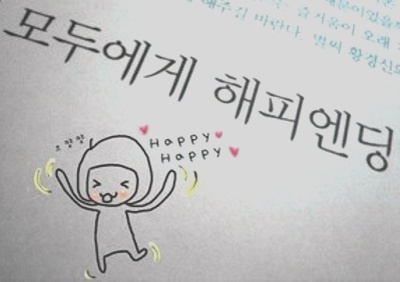 즐거움이 오래
해주길 바란다
모두에게 해피엔딩
Happy
Happy